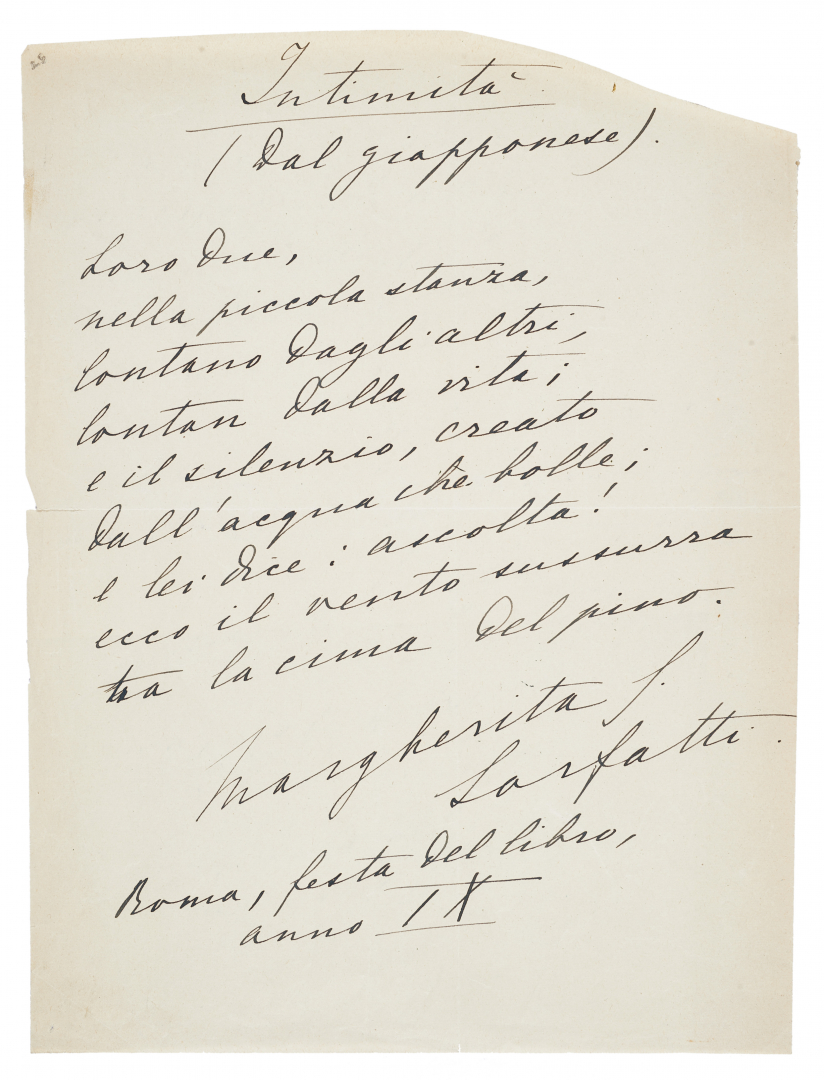 Intimità
(Dal giapponese).
Loro due,
nella piccola stanza,
lontano dagli altri,
lontan dalla vita;
e il silenzio, creato
dall'acqua che bolle;
e lei dice: ascolta!
ecco il vento sussurra
tra la cima del pino.
Margherita S.
Sarfatti.
Roma, festa del libro,
anno IX